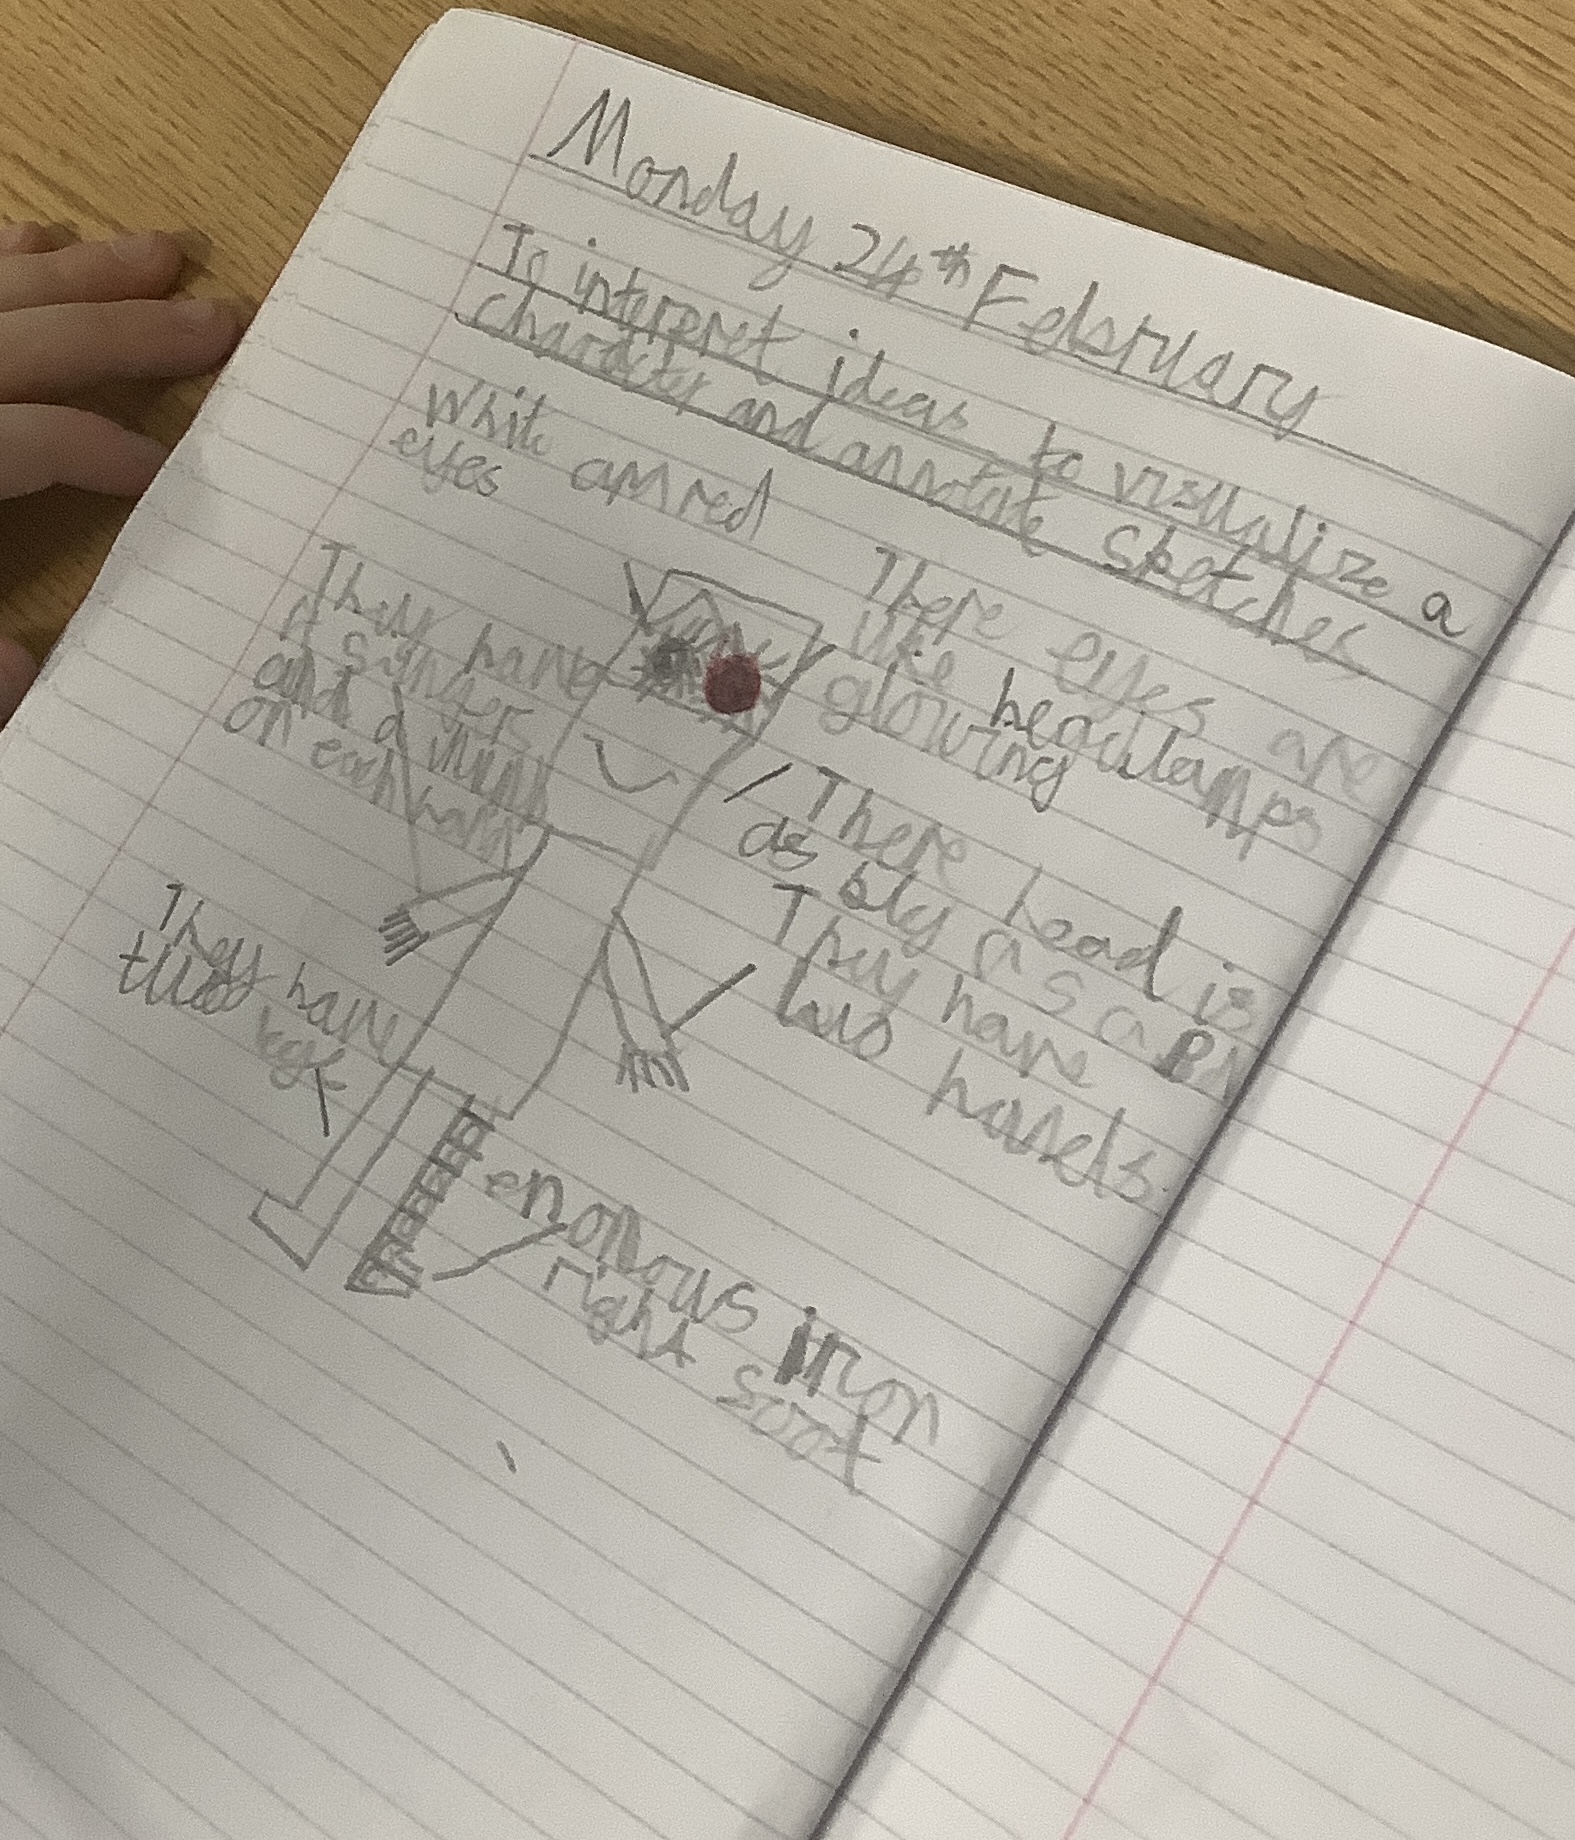 Monday 24th February
To interpret ideas to visualize a
character and annotate sketches
White am red
eyes
There eyes are
like heculamps
glowing
They have
and a
on each hand
There head is
as
They have
two hands.
They have
two legs
enomous iron
right soot